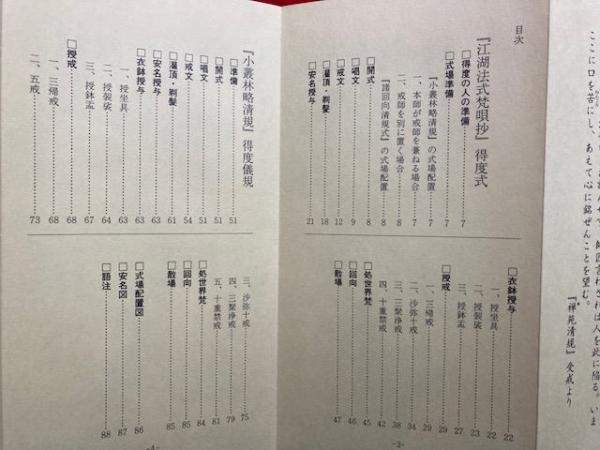 ここに口を苦にし、あえて心に銘ぜんことを望む。
『禅苑清規』受戒より
目次
『江湖法式梵唄抄』得度式
□得度の人の準備……7
□式場準備……7
『小叢林略清規』の式場配置……7
一、本師が戒師を兼ねる場合……7
二、戒師を別に置く場合……7
『諸回向清規式』の式場配置……8
□開式……8
□唱文……9
□戒文……12
□灌頂・剃髪……18
□安名授与……21
□衣鉢授与……22
一、授坐具……22
二、授袈裟……23
三、授鉢盂……27
□授戒……29
一、三帰戒……29
二、沙弥十戒……34
三、三聚浄戒……38
四、十重禁戒……42
□処世界梵……45
□回向……46
□散場……47
-3-
『小叢林略清規』得度儀規
□準備……51
□開式……51
□唱文……51
□戒文……54
□灌頂・剃髪……61
□安名授与……63
□衣鉢授与……63
一、授坐具……63
二、授袈裟……64
三、授鉢盂……67
□授戒……68
一、三帰戒……68
二、五戒……73
三、沙弥十戒……75
四、三聚浄戒……79
五、十重禁戒……81
□処世界梵……84
□回向……85
□散場……85
□式場配置図……86
□安名図……87
□語注……88
-4-